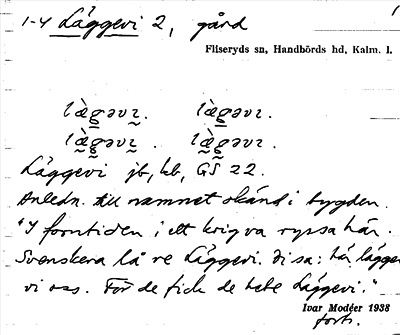 1-4 Läggevi 2, gård
Fliseryds sn, Handbörds hd, Kalm. l.
lägəvɩ. lägəvɩ.
lägəvɩ. lägəvɩ.
Läggevi jb, kb, GS 22.
Anledn. till namnet okänd i bygden.
"I forntiden i ett krig va ryssa här.
Svenskera lå ve Läggevi. Di sa: här lägger
vi oss. För de fick de heta Läggevi."
Ivar Modéer 1938
forts.